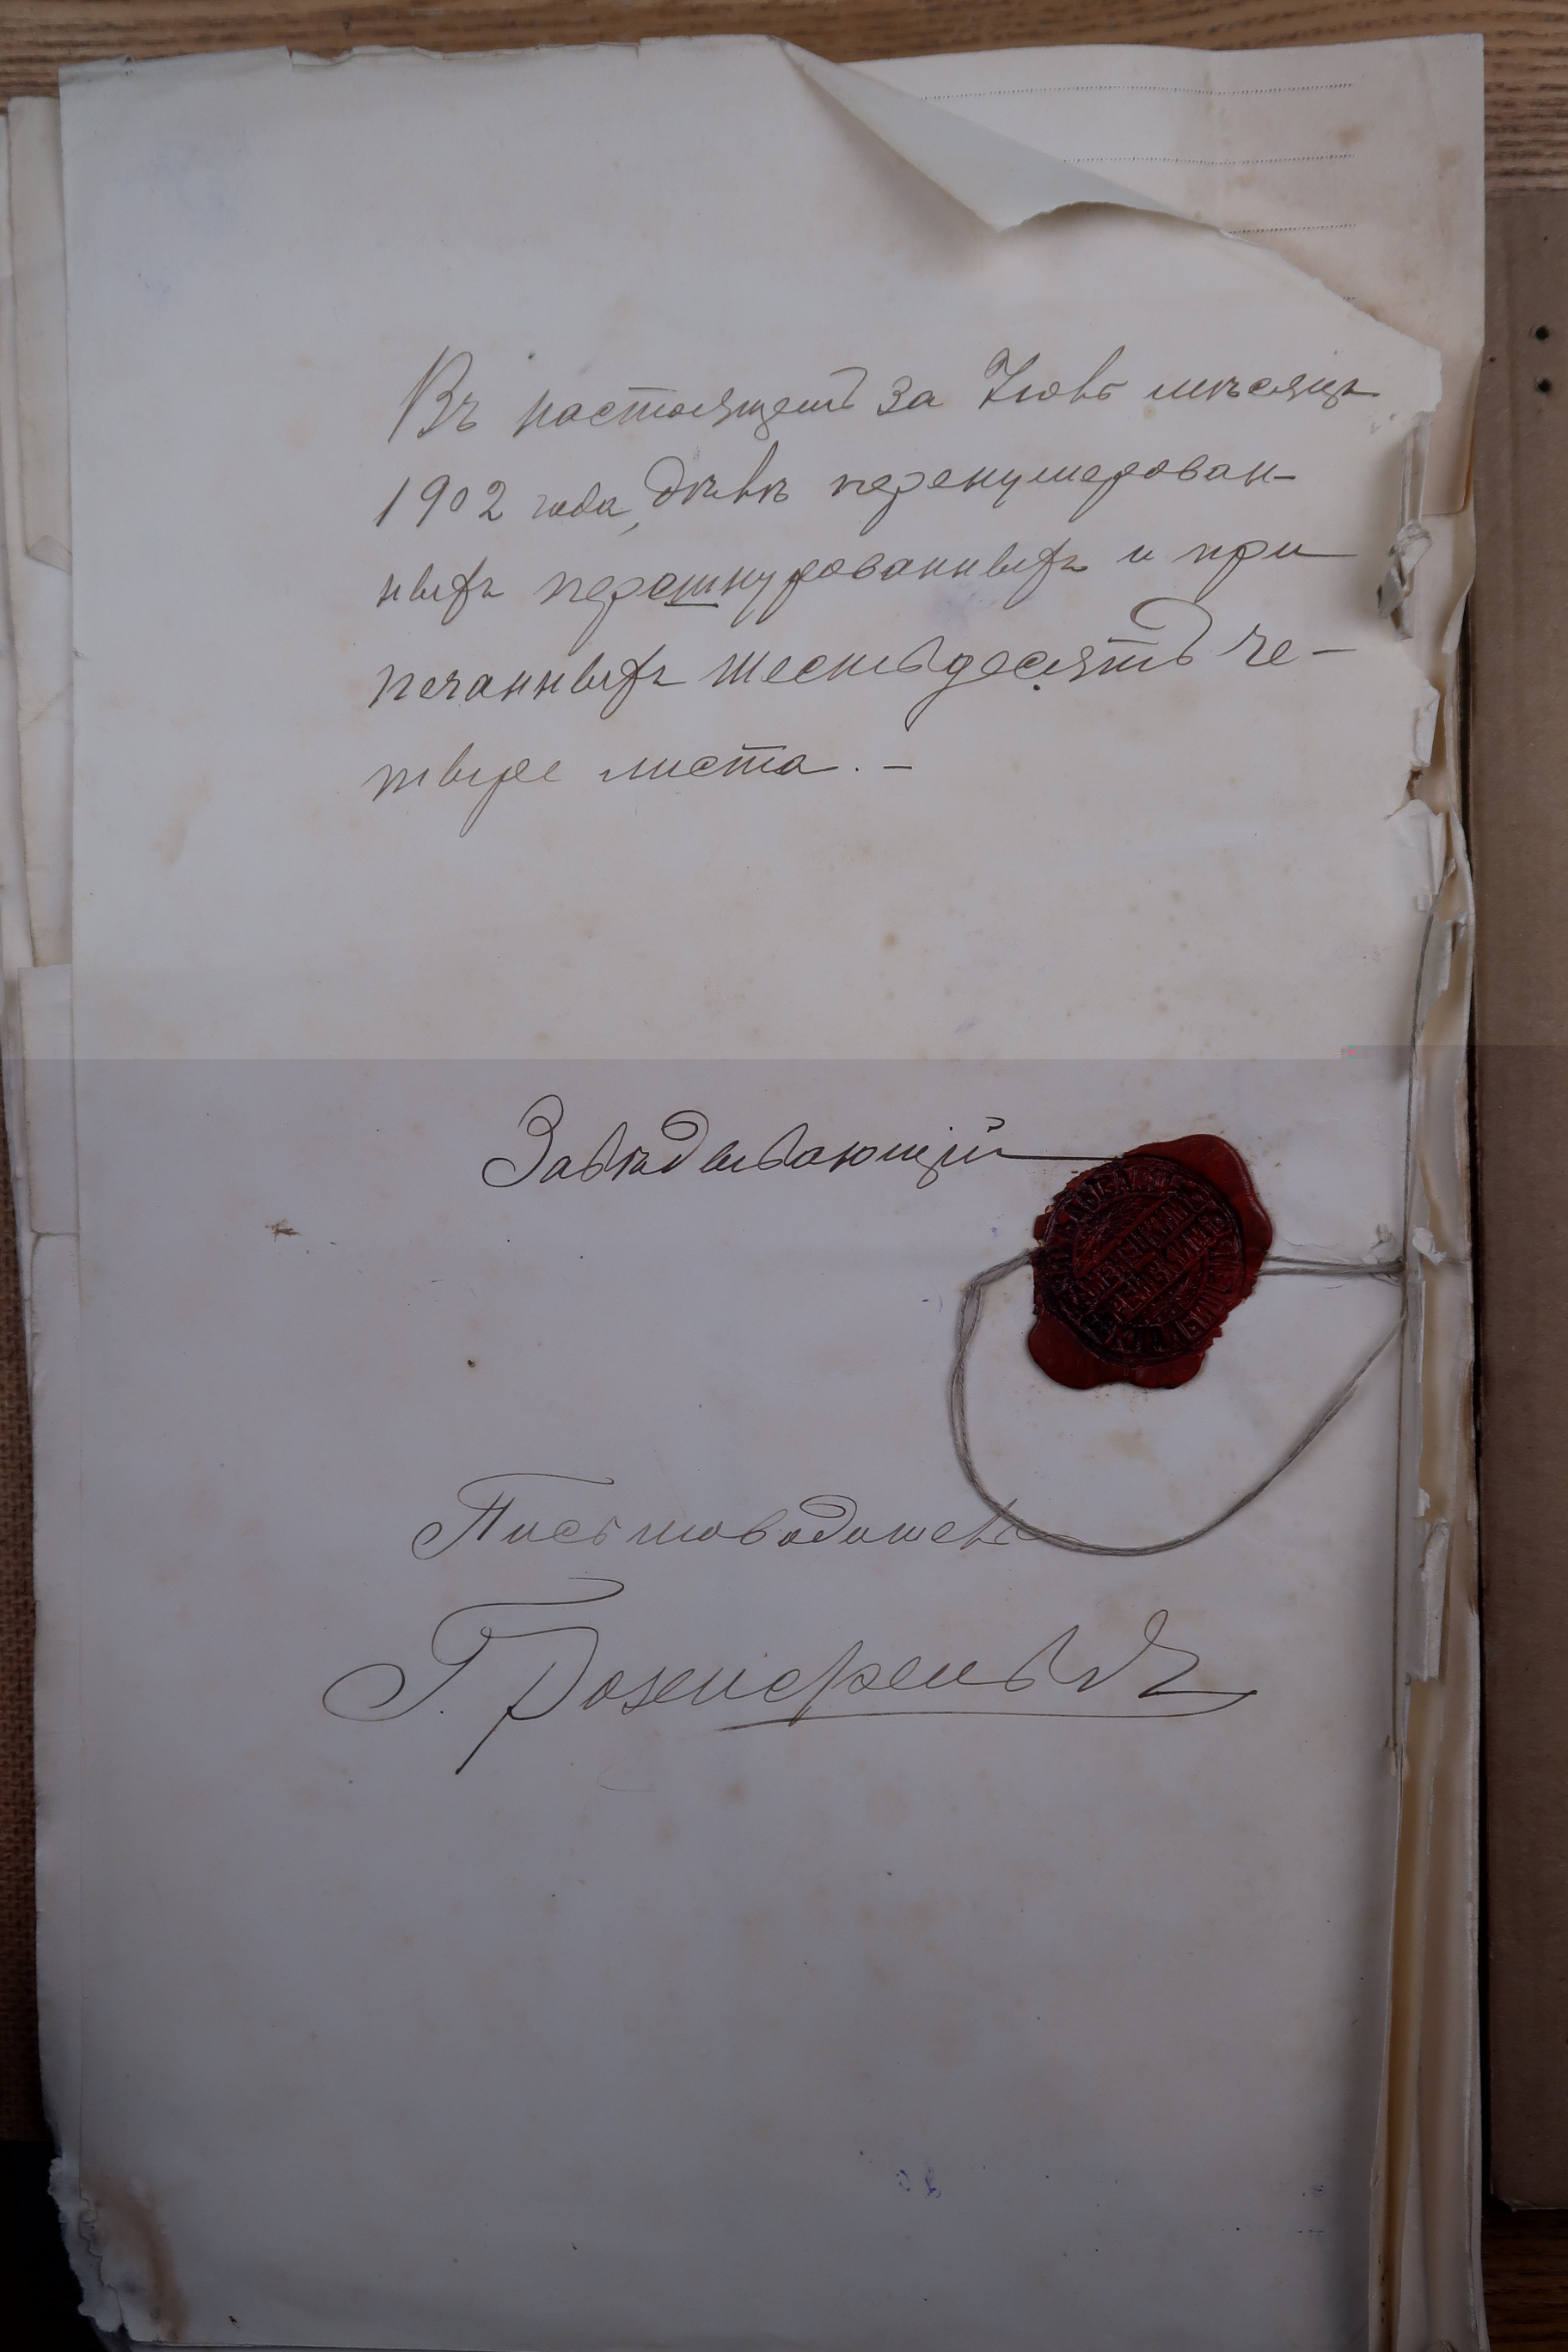 Въ настоящемъ за Іюль мѣсяцъ
1902 года, дѣлѣ перенумерован-
ныхъ перешнурованныхъ и при
печанныхъ шестьдесятъ че-
тыре листа. –
Завѣдывающій
Письмоводитель
Г.